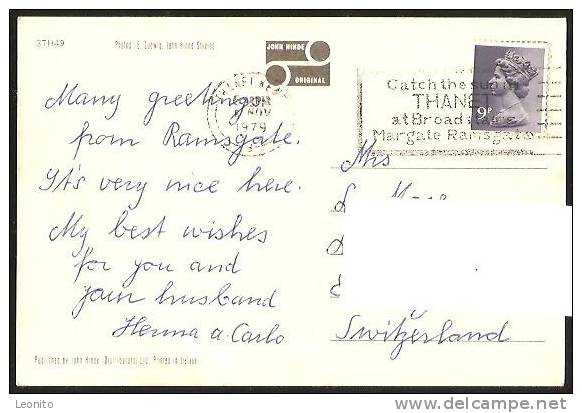 37H49
Photos: E. Ludwig, John Hinde Studios
JOHN HINDE
ORIGINAL
THANET KENT
NOV
1979
Catch the sun in
THANET
at Broadstairs
Margate Ramsgate
9P
Many greetings
from Ramsgate.
It's very nice here.
My best wishes
for you and
your husband
Herma a. Carlo
Mrs
Switzerland
Published by John Hinde (Distributors) Ltd., Printed in Ireland
Leonito
www.delcampe.net